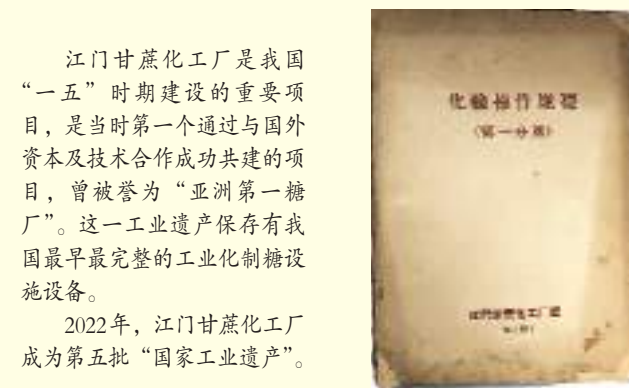 江门甘蔗化工厂是我国
“一五”时期建设的重要项
目，是当时第一个通过与国外
资本及技术合作成功共建的项
目，曾被誉为“亚洲第一糖
厂”。这一工业遗产保存有我
国最早最完整的工业化制糖设
施设备。
2022年，江门甘蔗化工厂
成为第五批“国家工业遗产”。
化验操作规程
（第一分册）
江门甘蔗化工厂